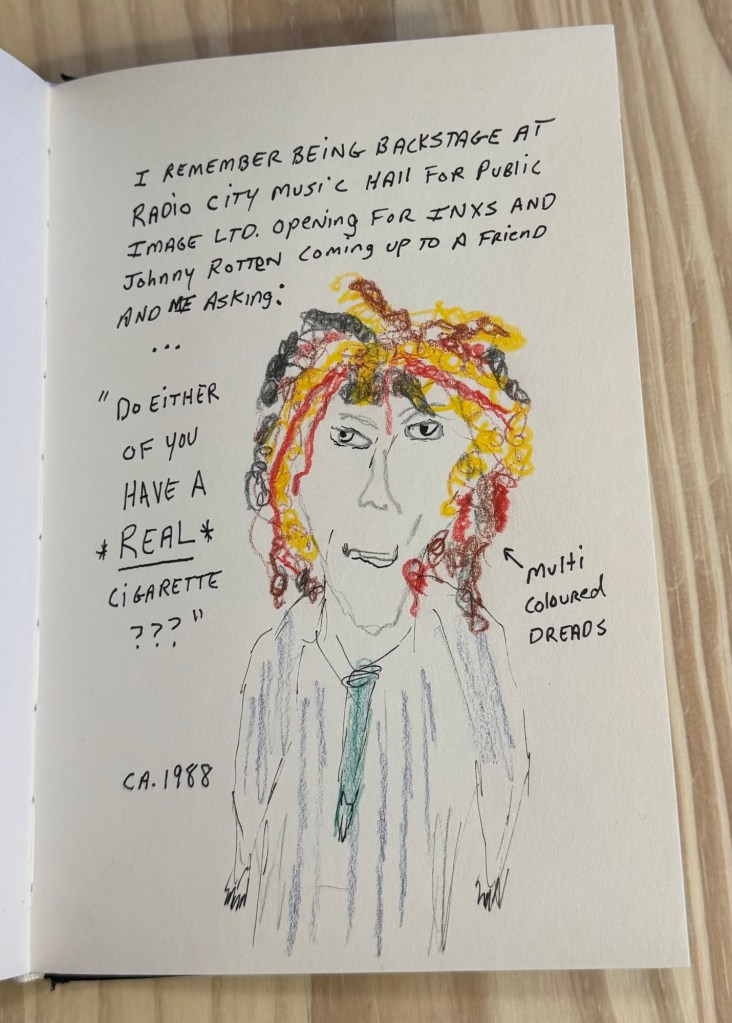 I REMEMBER BEING BACKSTAGE AT
RADIO CITY MUSIC HAll FOR PUBlIC
IMAGE LTD. OPENING FOR INXS AND
JOHNNY ROTTEN COMING UP TO A FRIEND
AND ME ASKING:
...
"DO EITHER
OF YOU
HAVE A
*REAL*
CIGARETTE
???"
MULTI
COLOURED
DREADS
CA. 1988